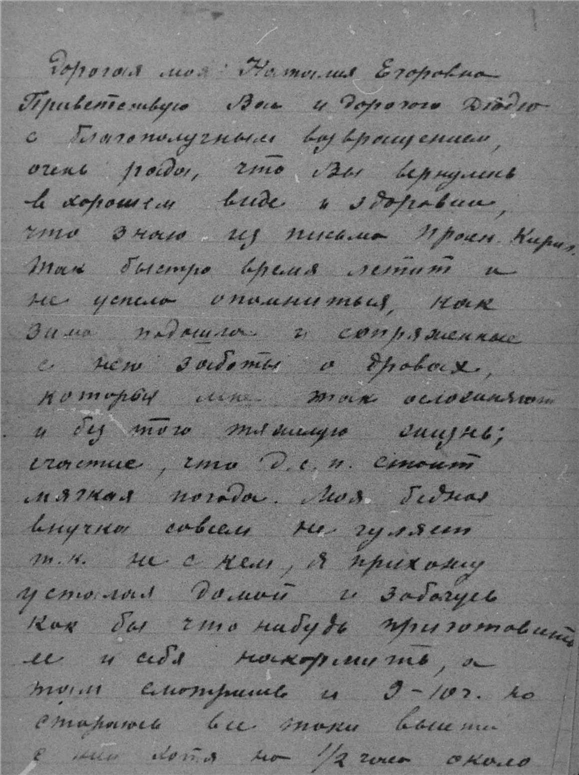 Дорогая моя Наталия Егоровна
Приветствую Вас и дорогого Дядю
с благополучным возвращением,
очень рада, что Вы вернулись
в хорошем виде и здоровии,
что знаю из письма Проск. Кирил.
Так быстро время летит и
не успела опомниться, как
зима подошла и сопряженные
с нею заботы о дровах,
которыя мне так осложняют
и без того тяжелую жизнь;
счастие, что д.с.п. стоит
мягкая погода. Моя бедная
внучка совсем не гуляет
т.к. не с кем, я прихожу
усталая домой и забочусь
как бы что нибудь приготовить
ее и себя накормить, а
там смотришь и 9-10 ч. но
стараюсь все таки выйти
с ней хотя на 1/2 часа около